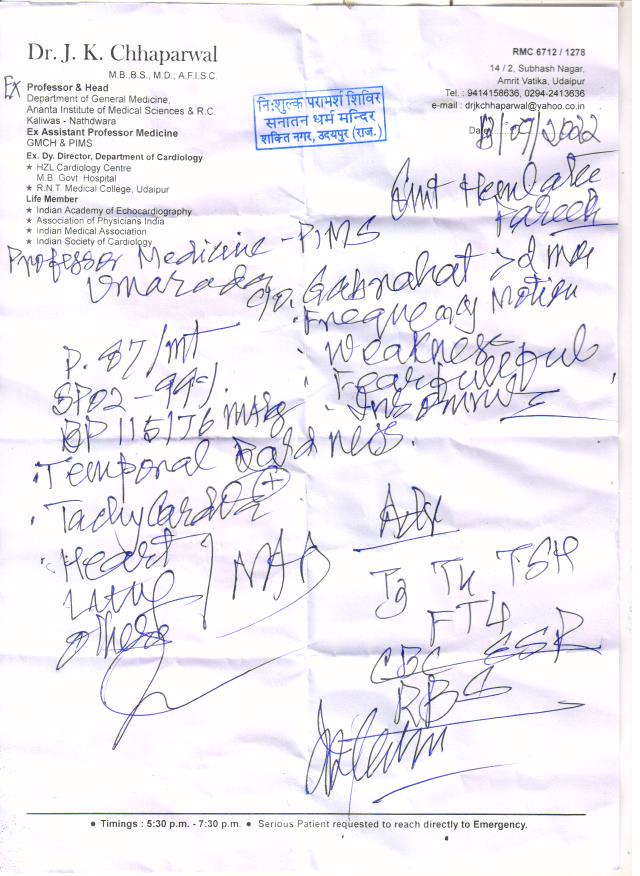 Dr. J. K. Chhaparwal
M.B.,B.S., M.D.; A.F.I.S.C.
Ex Professor & Head
Department of General Medicine,
Ananta Institute of Medical Sciences & R.C.
Kaliwas - Nathdwara
Ex Assistant Professor Medicine
GMCH & PIMS
Ex. Dy. Director, Department of Cardiology
★ HZL Cardiology Centre
M.B. Govt. Hospital
★ R.N.T. Medical College, Udaipur
Life Member
★ Indian Academy of Echocardiography
★ Association of Physicians India
★ Indian Medical Association
★ Indian Society of Cardiology
Professor Medicine - PIMS
Umarada
नि:शुल्क परामर्श शिविर
सनातन धर्म मन्दिर
शक्ति नगर, उदयपुर (राज.)
RMC 6712 / 1278
14 / 2, Subhash Nagar,
Amrit Vatika, Udaipur
Tel. : 9414158636, 0294-2413636
e-mail : drjkchhaparwal@yahoo.co.in
13/07/2022
Smt
Pareek
c/o. Gabrahat >
Frequency Motion
Weakness
P. 87/mt
SPO2 - 99%
BP 115/76 mmHg
Temporal Baldness.
Tachycardia +
Heart
NAD
Adv
T3 T4 TSH
FT4
CBC ESR
RBS
● Timings : 5:30 p.m. - 7:30 p.m. ● Serious Patient requested to reach directly to Emergency.